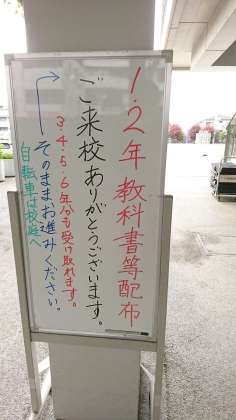 1.2年教科書等配布
ご来校ありがとうございます。
3.4.5.6年分も受け取れます。
そのままお進みください。
自転車は校庭へ